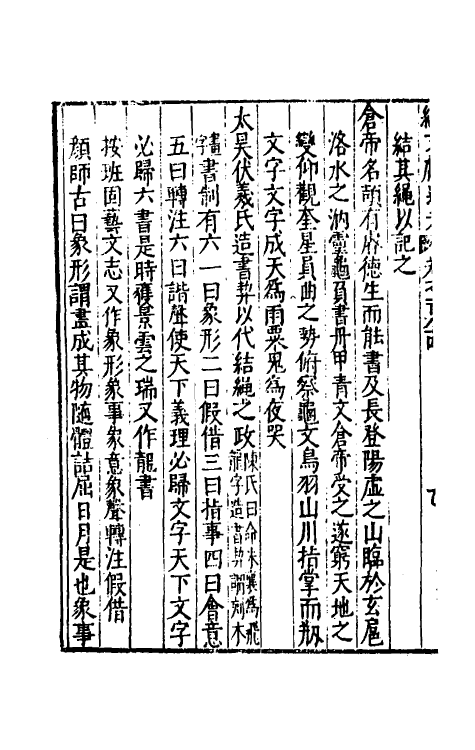 結其繩以記之
倉帝名頡有睿德生而能書及長登陽虛之山臨於玄扈
洛水之汭靈龜負書丹甲青文倉帝受之遂窮天地之
變仰觀奎星員曲之勢俯察龜文鳥羽山川指掌而剏
文字文字成天為雨粟鬼為夜哭
太昊伏羲氏造書契以代結繩之政陳氏曰命朱襄為飛龍字造書契謂刻木
畫字書制有六一曰象形二曰假借三曰指事四曰會意
五曰轉注六曰諧聲使天下義理必歸文字天下文字
必歸六書是時獲景雲之瑞又作龍書
按班固藝文志又作象形象事象意象聲轉注假借
顏師古曰象形謂畫成其物隨體詰屈日月是也象事